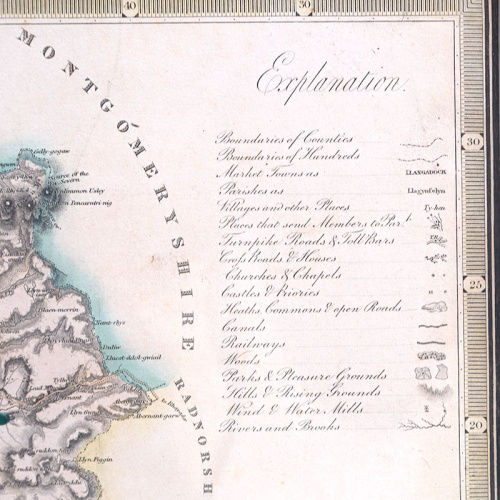 40
30
MONTGOMERYSHIRE
Explanation.
Boundaries of Counties
Boundaries of Hundreds
Market Towns as LLANGADOCK
Parishes as Llagynfelyn
Villages and other Places Ty-hen
Places that send Members to Par.t
Turnpike Roads & Toll Bars
Cross Roads & Houses
Churches & Chapels
Castles & Priories
Heaths, Commons & open Roads
Canals
Railways
Woods
Parks & Pleasure Grounds
Hills & Rising Grounds
Wind & Water Mills
Rivers and Brooks
30
25
20
Source of the Severn
Blaen-merrin
Nant-rhys
Dulliw
Llyn Figgin
RADNORSH